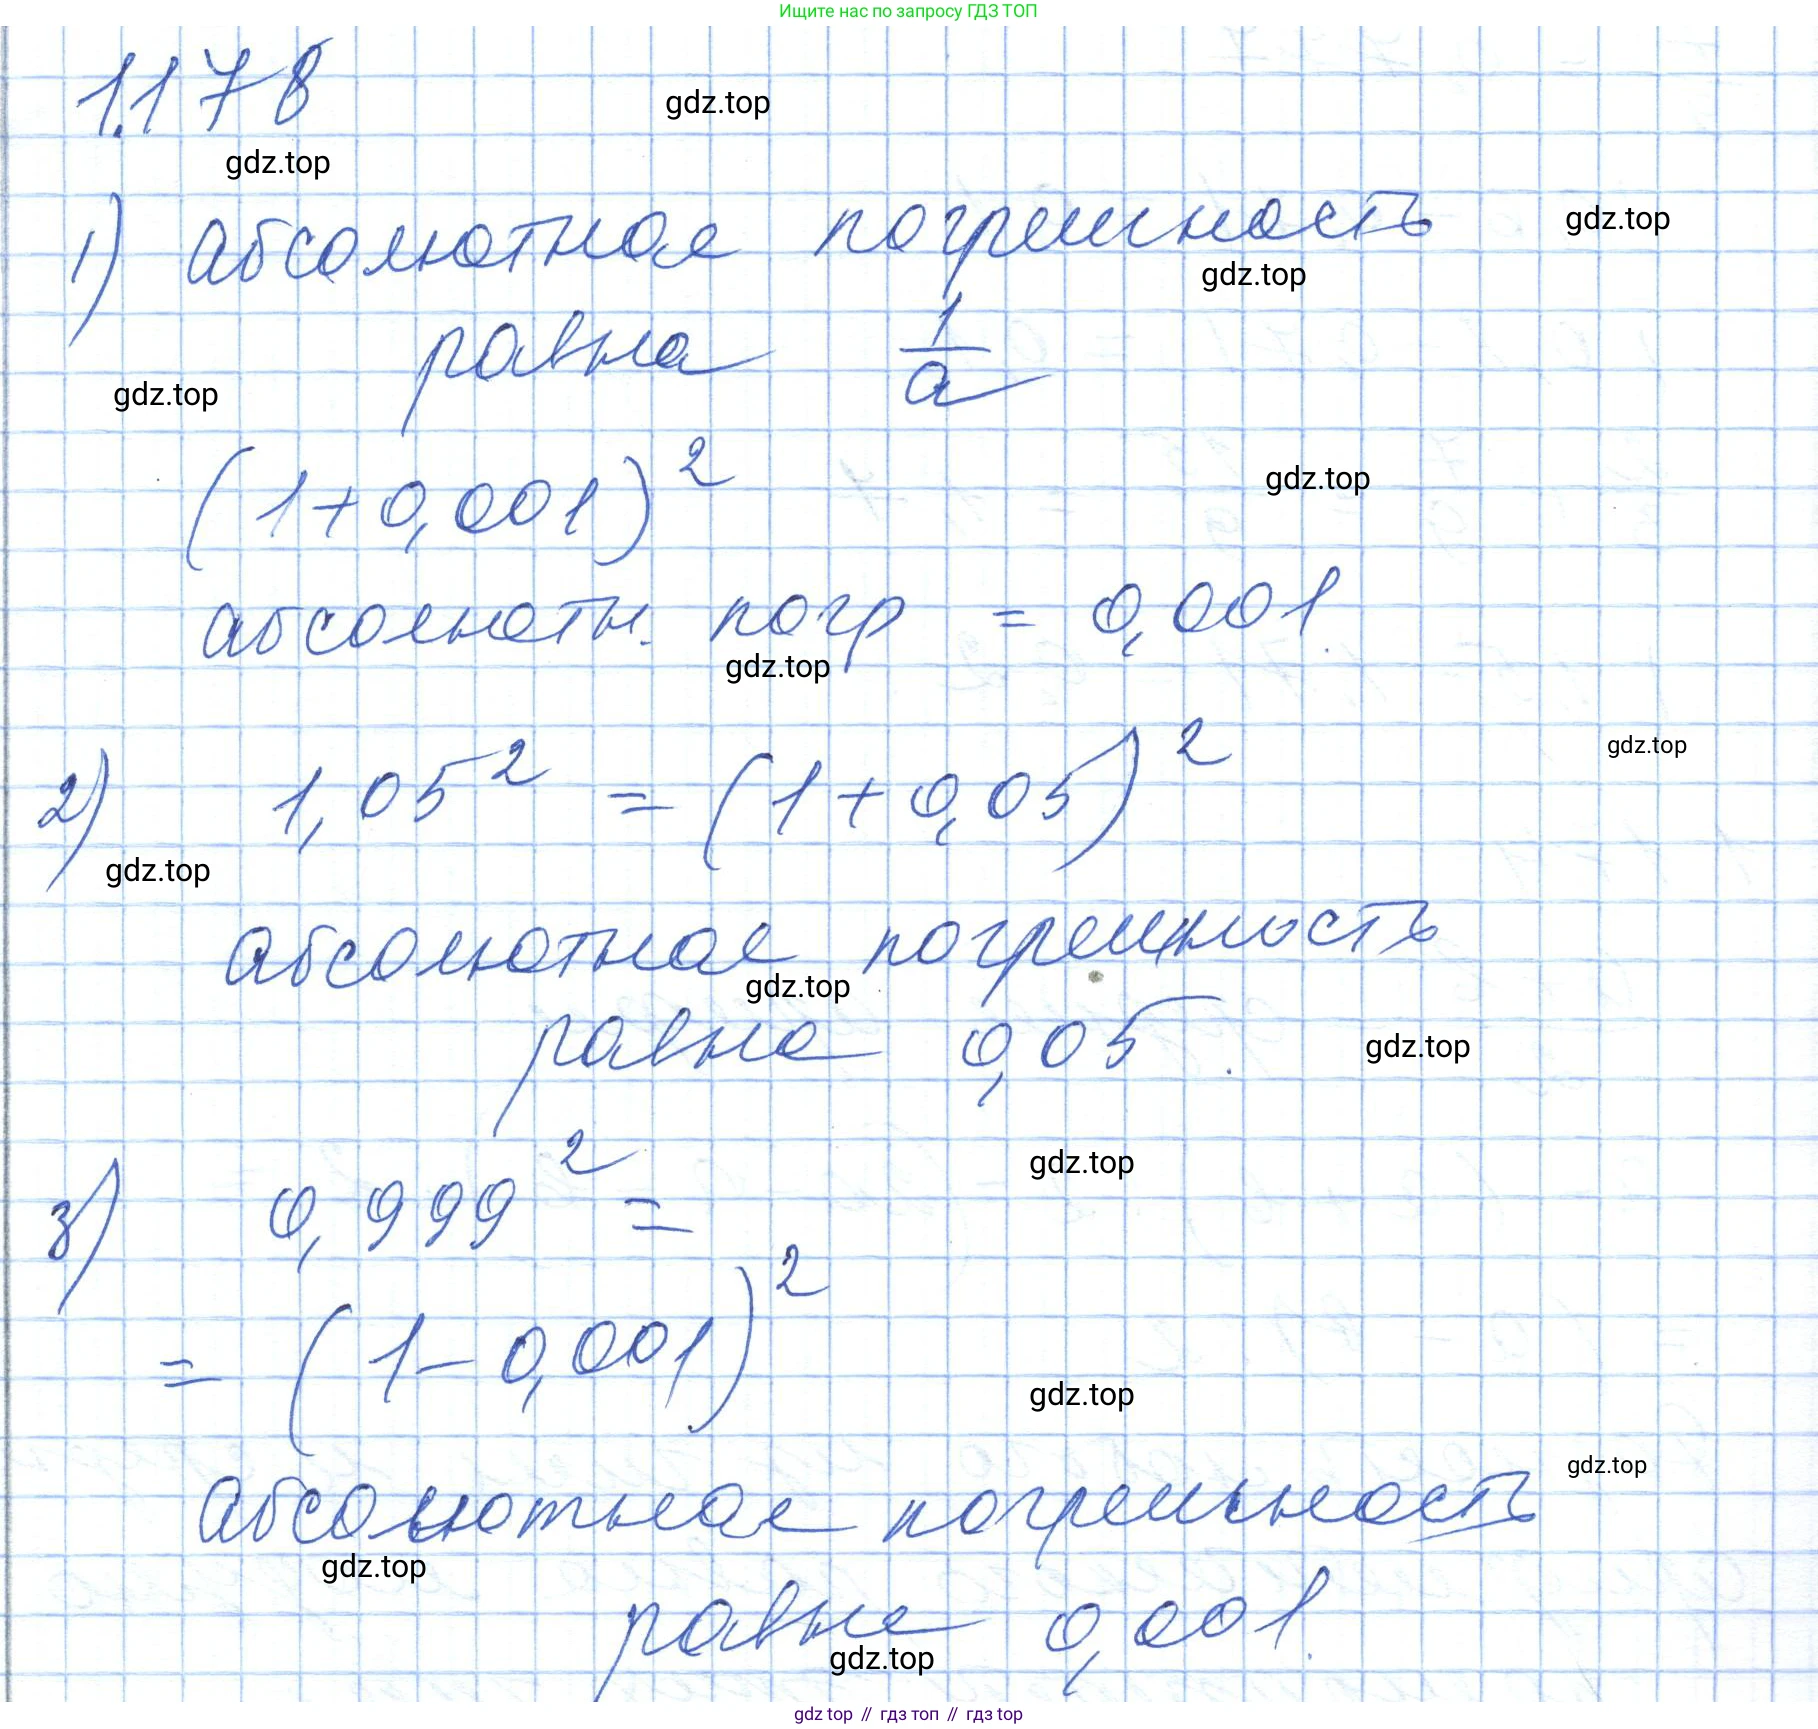 Ищите нас по запросу ГДЗ ТОП
1.178
gdz.top
gdz.top
1) абсолютная погрешность
gdz.top
gdz.top
равна 1/a
gdz.top
(1+0,001)²
gdz.top
абсолютн. погр = 0,001.
gdz.top
2) 1,05² = (1+0,05)²
gdz.top
gdz.top
абсолютная погрешность
gdz.top
равна 0,05.
gdz.top
gdz.top
3) 0,999² =
= (1-0,001)²
gdz.top
gdz.top
абсолютная погрешность
gdz.top
равна 0,001.
gdz.top
gdz top // гдз топ // гдз top